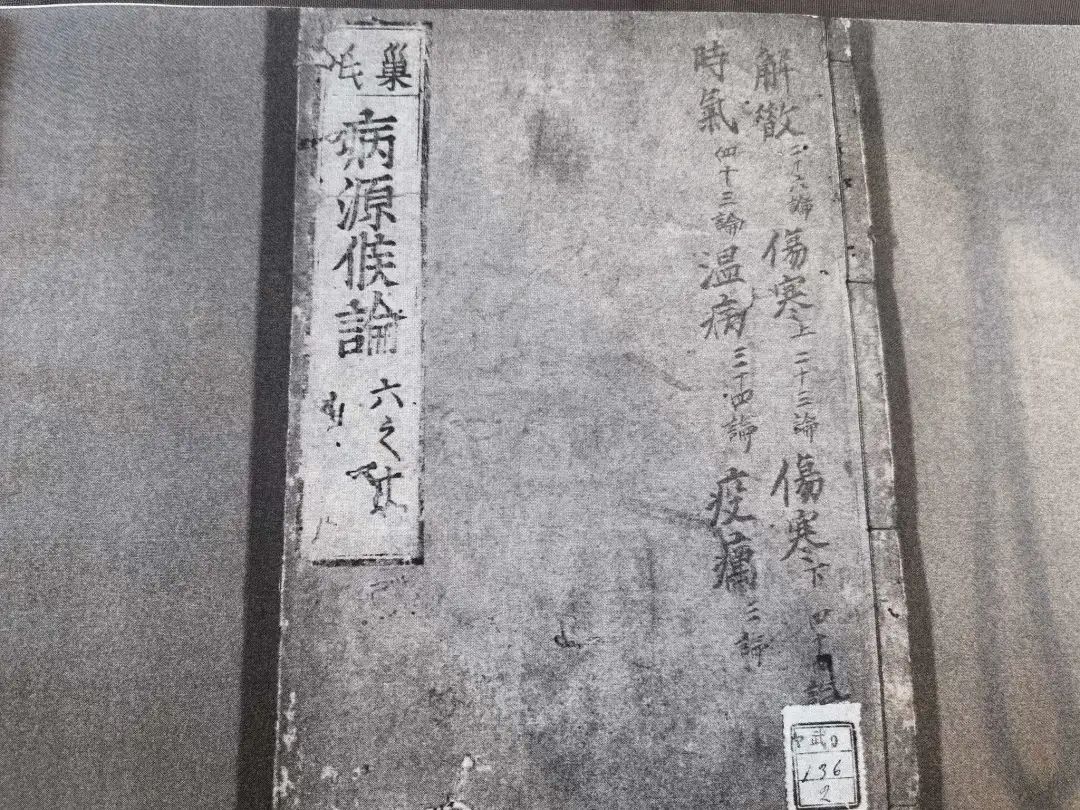 解散二十六論傷寒上二十三論傷寒下四十
時氣四十三論温病三十四論疫癘三論
巢氏
病源候論
六之
武
136
2